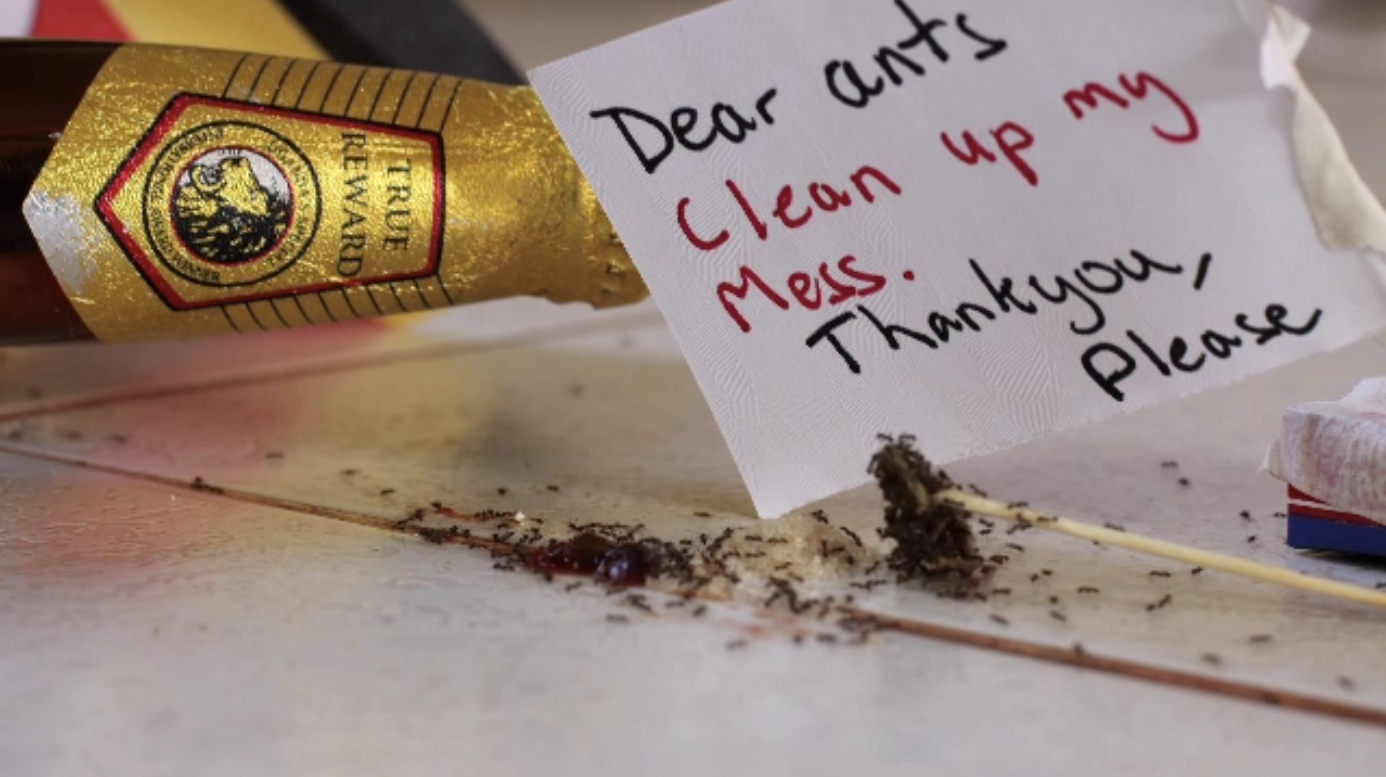 TRUE
REWARD
Dear ants
Clean up my
Mess.
Thankyou,
Please